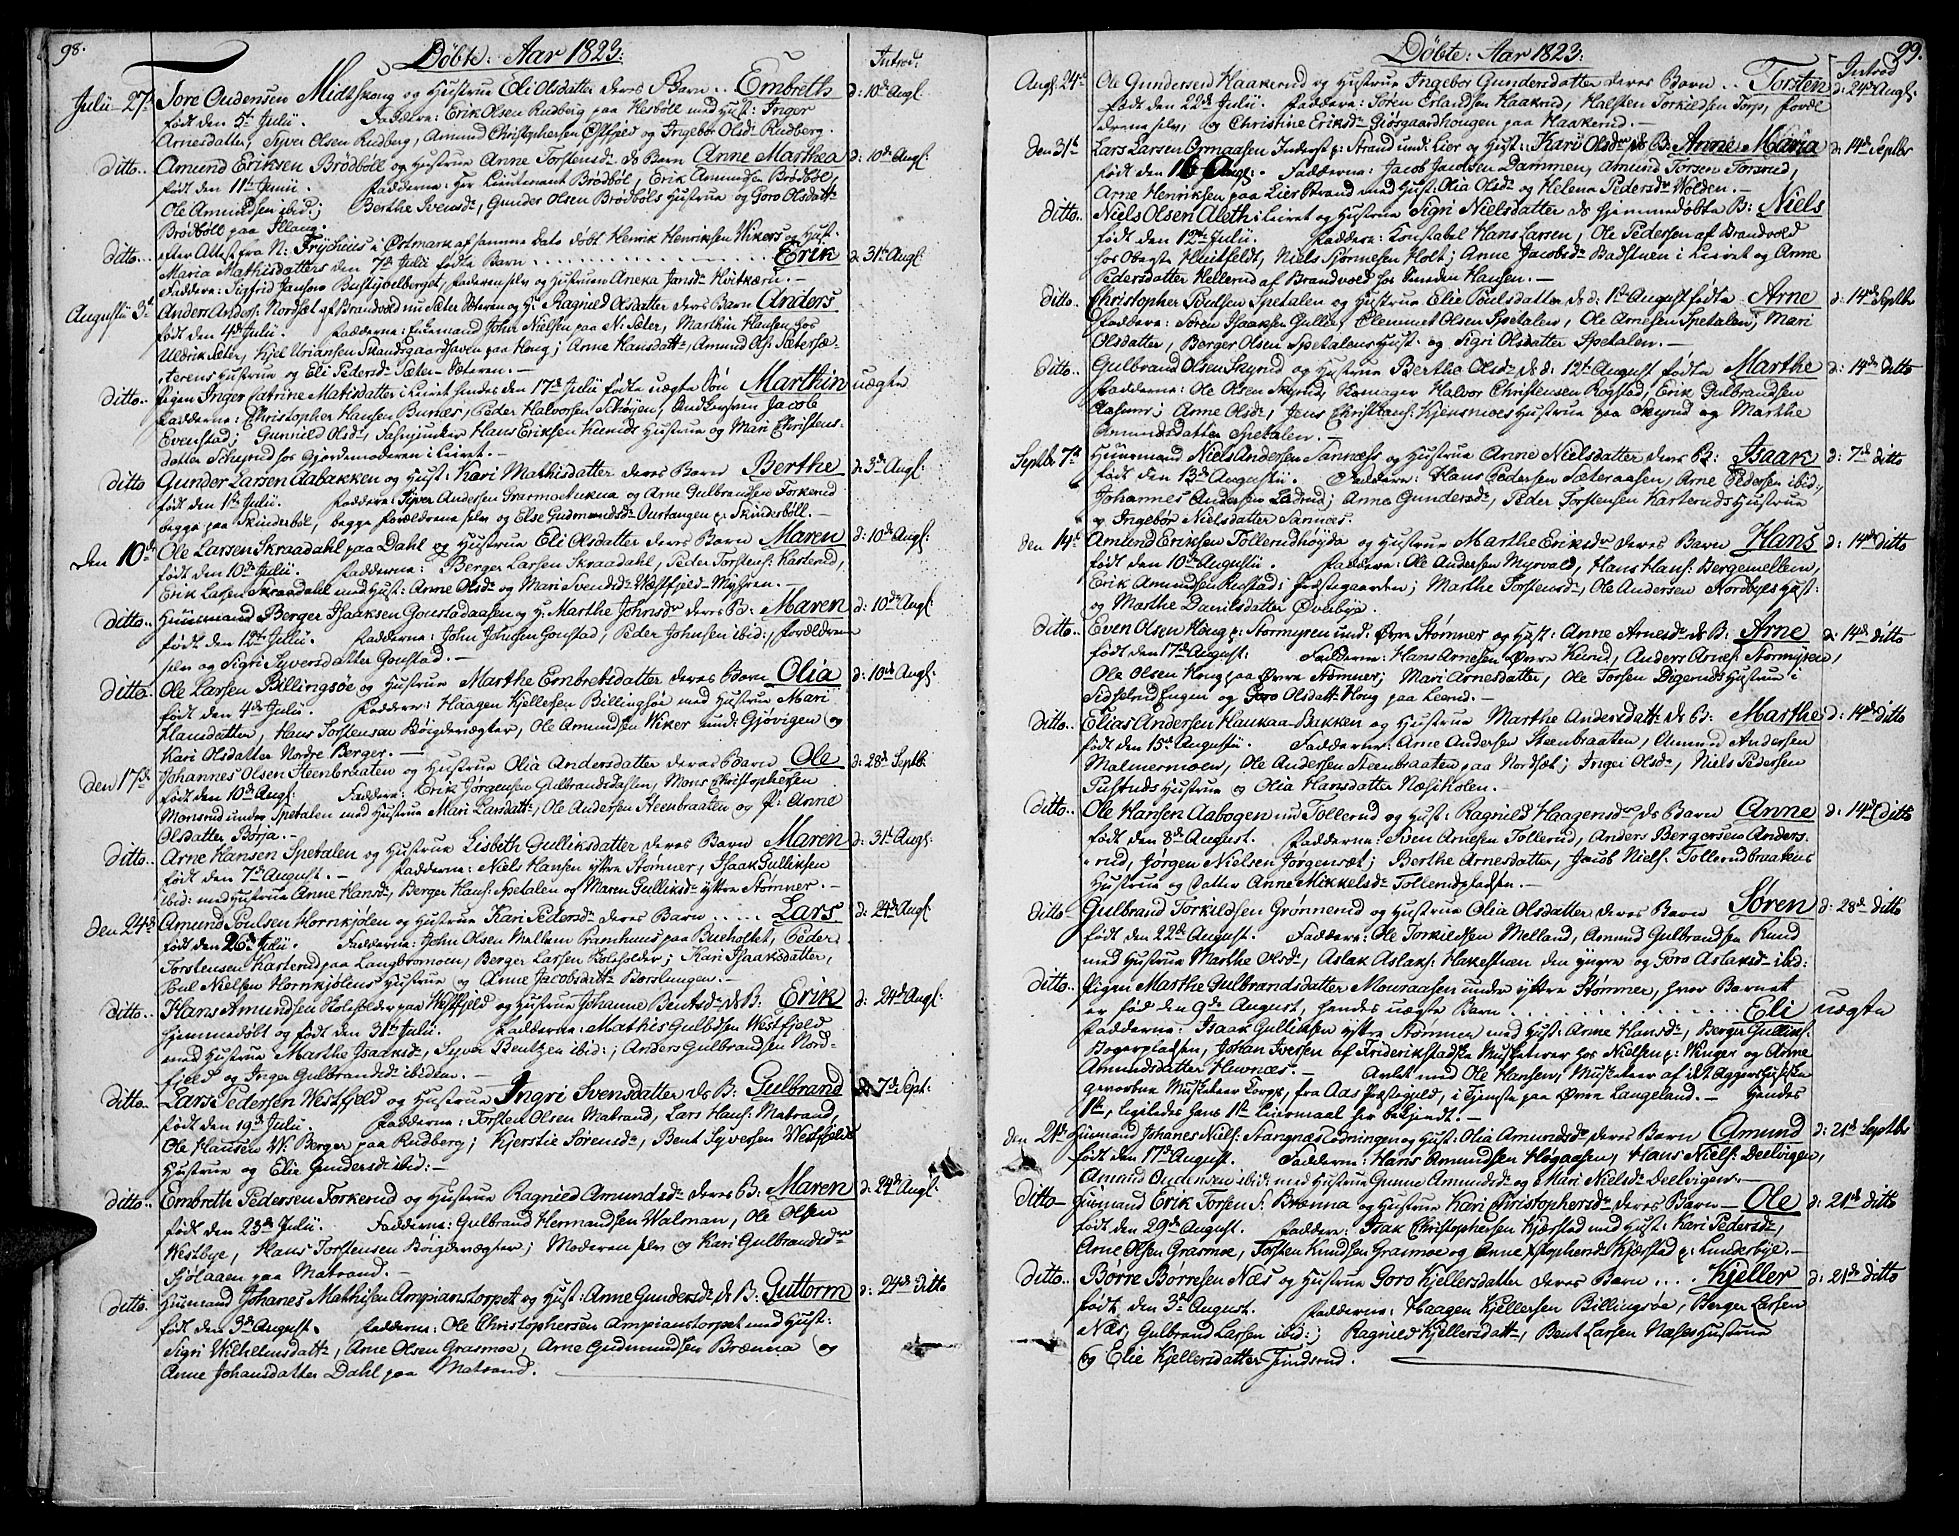 98.
Döbte: Aar 1823:
Introd:
Julii 27de Tore Oudensen Midtskong og Hustrue Eli Olsdatter deres Barn .. Embreth d: 10de Augl.
født den 5te Julii. Fadderne: Erik Olsen Rudberg paa Nesböll med Hust: Inger
Arnesdatter, Syver Olsen Rudberg, Amund Christophersen Östfjeld og Ingebor Olsdr Rudberg.
ditto.. Amund Eriksen Brödböll og Hustrue Anne Torstensdr ds Barn Anne Marthea d: 10de Augl:
født den 11te Junii. Fadderne: Her Lieutenant Brödböl, Erik Amundsen Brödböl,
Ole Amundsen ibid; Berthe Svensdr, Gunder Olsen Brödböls Hustrue og Goro Olsdattr
Brödböll paa
ditto.. efter Attest fra N: Fryxelius i Östmark af samme dato döbt Henrik Henriksen Wikers og Hust.
Maria Mathisdatters den 7de Julii födte Barn .......... Erik d: 31te Augl:
Faddere: Sigfrid Jansen Bustybelberget, Faderen selv og Hustruen Aneka Jansdr Hvitkærn.
Augustii 3de Anders Anders: Nordsæt af Brandvold nu Sæter Eieren og H: Ragnild Olsdatter deres Barn Anders
født den 4de Julii. Fadderne: Lensmand John Nielsen paa N: Sæter, Marthin Hansen hos
Uldrik Sæter, Kjel Uriansen Skandsgaardhaven paa Kong; Anne Hansdattr, Amund Ols: Sætersæ-
terens Hustrue og Eli Pedersdr Sæter-Sæteren.
ditto.. Pigen Inger Catrine Matisdatter i Leiret hendes den 17de Julii födte uægte Sön Marthin uægte
Fadderne: Christophes Hansen Burnæs, Peder Halvorsen Schöyen, Jacob
Evenstad; Gunnild Olsdr, Fahnjunker Hans Eriksen Kunds Hustrue og Mari Christens-
datter Schyrud hos Gjordemoderen i Leiret.
ditto Gunder Larsen Aabakken og Hust: Kari Mathisdatter deres Barn Berthe d: 3de Augl:
født den 1te Julii. Fadderne: Syver Andersen Grasmoe og Arne Gulbrandsen Forkerud
begge paa Skinderböl, begge forældrene selv og Else Gudmundsdr Ourstangen p: Skinderböll.
den 10de Ole Larsen Skraadahl paa Dahl og Hustrue Eli Olsdatter deres Barn Maren d: 10de Augl:
født den 10de Julii. Fadderne: Berger Larsen Skraadahl, Peder Torstens: Karterud,
Erik Larsen Skraadahl med Hust: Anne Olsdr og Mari Svendsdr Westfjeld-Myhren.
ditto. Huusmand Berger Isaaksen Goustadaasen og H: Marthe Johnsdr deres B: Maren d: 10de Augl:
født den 12te Julii. Fadderne: John Johnsen Goustad, Peder Johnsen ibid:, forældrene
selv og Sigri Syversdatter Goustad.
ditto Ole Larsen Billingsöe og Hustrue Marthe Embretsdatter deres Barn Olia d: 10de Augl:
født den 4de Julii. Faddere: Haagen Kjellersen Billingsöe med Hustrue Mari
Hansdatter, Hans Torstensen Böigdevægter, Ole Amundsen Wiker und: Gjövigen og
Kari Olsdatter Nordre Berger.
den 17de Johannes Olsen Steenbraaten og Hustrue Olia Andersdatter deres Barn Ole d: 28de Septbr
født den 10de Augl: Faddere: Erik Jörgensen Gulbrandsdahlen, Mons Christophersen
Monsrud under Spetalen med Hustrue Mari Larsdattr, Ole Andersen Steenbraaten og P: Anne
Olsdatter Börja.
ditto.. Arne Hansen Spetalen og Hustrue Lisbeth Gulliksdatter deres Barn Maren d: 31te Augl:
født den 7de August. Fadderne: Niels Hansen yttre Stömner, Isaak Gulliksen
ibid: med Hustrue Anne Hansdr, Berger Hans: Spetalen og Maren Gulliksdr yttre Stömner.
den 24de Amund Poulsen Hornkjölen og Hustrue Kari Pedersdr deres Barn ..... Lars d: 24de Augl
født den 26de Julii. Fadderne: John Olsen Mellem Pramhuus paa Bueholtet, Peder
Torstensen Karterud paa Langbromoen, Berger Larsen Kolefolder; Kari Isaaksdatter,
Poul Nielsen Hornkjölens Hustrue og Anne Jacobsdattr Korslungen.
ditto.. Hans Amundsen Kolefelder paa Westfjeld og Hustrue Johanne Bentsdr ds B: Erik d: 24de Augl:
hjemmedöbt og födt den 31te Julii. Fadderne: Mathis Gulbdsen Westfjeld
med Hustrue Marthe Isaaksdr, Syver Bentzen ibid:; Anders Gulbrandsen Nord-
fjeld og Inger Gulbrandsdr ibidem.
ditto.. Lars Pedersen Westfjeld og Hustrue Ingri Svensdatter ds B: Gulbrand d: 7de Sept:
født den 19de Julii. Fadderne: Torsten Olsen Matrand, Lars Hans: Matrand,
Ole Hansen W: Berger paa Rudberg; Kjerstie Sörensdr, Bent Syversen Westfjelds
Hustrue og Elie Gundersdr ibid:
ditto.. Embreth Pedersen Forkerud og Hustrue Ragnild Amundsdr deres B: Maren d: 24de Augl:
født den 23de Julii. Fadderne: Gulbrand Hermandsen Walman, Ole Olsen
Westbye, Hans Torstensen Böigdevægter; Moderen selv og Kari Gulbrandsdr
Sjölaaen paa Matrand.
ditto.. Huusmand Johanes Mathisen Ampianstorpet og Hust: Anne Gundersdr ds B: Guttorm d: 24de ditto
født den 3de August. Fadderne: Ole Christophersen Ampianstorpet med Hust:
Sigri Wilhelmsdattr, Arne Olsen Grasmoe, Arne Gudmundsen Brænna og
Anne Johansdatter Dahl paa Matrand.
99.
Döbte: Aar 1823:
Introd
Augl: 24de Ole Gundersen Haakerud og Hustrue Ingebor Gundersdatter deres Barn .. Torsten d: 24de Augl:
født den 22de Julii. Faddere: Sören Erlandsen Haakrud, Halsten Torkildsen Torp, foræl
drene selv, og Christine Eriksdr Giösgaardhougen paa Haakerud.
den 31te Lars Larsen Ormaasen Inderst p: Strand und: Lier og Hust: Kari Olsdr ds B: Anne Maria d: 14de Septbr
født den 16de Augl: Fadderne: Jacob Jacobsen Dammen, Amund Torsen Torsrud,
Arne Henriksen paa Lier Strand med Hust: Olia Olsdr og Helena Pedersdr Wolden.
ditto.. Niels Olsen Aleth i Leiret og Hustrue Sigri Nielsdatter ds hjemmedöbte B: Niels
født den 12te Julii. Faddere: Konstabel Hans Larsen, Ole Pedersen af Brandvold
hos Obrste Huitfeldt, Niels Björnesen Holt; Anne Jacobsdr Badstuen i Leiret og Anne
Pedersdatter Hellerud af Brandvold hos Hansen.
ditto.. Christopher Poulsen Spetalen og Hustrue Elie Poulsdatter ds d: 1te August födte Arne d: 14de Septbr
Faddere: Sören Isaaksen Gullie, Clemmet Olsen Spetalen, Ole Arnesen Spetalen; Mari
Olsdatter, Berger Olsen Spetalens Hust. og Sigri Olsdatter Spetalen.
ditto.. Gulbrand Olsen Skyrud og Hustrue Berthe Olsdr ds d: 12te August födte Marthe d: 14de ditto
Fadderne: Ole Olsen Skyrud, Remager Halvor Christensen Rogstad, Erik Gulbrandsen
Aasum; Anne Olsdr, Jens Christians: Kjensmoes Hustrue paa Skyrud og Marthe
Amundsdatter Spetalen.
Septbr 7de Huusmand Niels Andersen Sannæss og Hustrue Anne Nielsdatter deres B: Isaak d: 7de ditto
født den 13de Augustii. Faddere: Hans Pedersen Sæteraasen, Arne Pedersen ibid:,
Johannes Andersen Ladrud; Anne Gundersdr, Peder Torstensen Karteruds Hustrue
og Ingebör Nielsdatter Sannæs.
den 14de Amund Eriksen Tolleruдhöyda og Hustrue Marthe Eriksdr deres Barn Hans d: 14de ditto
født den 10de Augustii. Faddere: Ole Andersen Myrvold, Hans Hans: Bergemellem,
Erik Amundsen Rustad i Præstegaarden; Marthe Torstensdr, Ole Andersen Nordbyes Hust:
og Marthe Danilsdatter Överbye.
ditto.. Even Olsen Kong p: Stormyren und: Övre Stömner og Hust: Anne Arnesdr ds B: Arne d: 14de ditto
født den 17de August: Fadderne: Hans Arnesen Övre Kurud, Anders Arnes: Stormyren,
Ole Olsen Kong paa Övre Stömner; Mari Arnesdatter, Ole Torsen Digeruds Hustrue i
Sidselrud Engen og Goro Olsdattr Kong paa Leerud.
ditto.. Elias Andersen Haukaa-Bakken og Hustrue Marthe Andersdattr ds B: Marthe d: 14de ditto
født den 15de Augustii. Fadderne: Arne Andersen Steenbraaten, Amund Andersen
Malmermoen, Ole Andersen Steenbraaten paa Nordsæt; Inger Olsdr, Niels Pedersen
Pustruds Hustrue og Olia Hansdatter Næsiholen.
ditto.. Ole Hansen Aabogen nu Tollerud og Hust: Ragnild Haagensdr ds Barn Anne d: 14de ditto
født den 8de August. Faddere: Sven Arnesen Tollerud, Anders Bergersen Anders-
rud, Jörgen Nielsen Jörgensæt; Berthe Arnesdatter, Jacob Niels: Tollerudbraatens
Hustrue og Datter Anne Mikkelsdr Tollerudpladsen.
ditto- Gulbrand Torkildsen Grönnerud og Hustrue Olia Olsdatter deres Barn Sören d: 28de ditto
født den 22de August. Faddere: Ole Torkildsen Melland, Amund Gulbrandsen Rund
med Hustrue Marthe Olsdr, Aslak Aslaks: Hakestræn den yngre og Goro Aslaksdr ibid:
ditto.. Pigen Marthe Gulbrandsdatter Mouraasen under yttre Stömner, hvor Barnet
er föd den 9de August, hendes uægte Barn .......... Eli uægte
Fadderne: Isaak Gulliksen yttre Stömner med Hust: Anne Hansdr, Berger Gulliks:
Bogerpladsen, Johan Iversen af Friderikstadske Musketerer hos Nielsen p: Winger og Anne
Amundsdatter Huvnæs. Avlet med Ole Hansen, Musketeer af det Aggershusiske
gevorbne Musketeer Corps, fra Aas Præstegield, i Tjeneste paa Övre Langeland. Hendes
1te, ligeledes hans 1te Leiermaal saavidt bekjendt.
den 21de Huusmand Johanes Niels: Stangnæs Lodningen og Hust: Olia Amundsdr deres Barn Amund d: 21de Septbr
født den 17de August. Fadderne: Hans Amundsen Högaasen, Hans Niels: Deelvigen,
Amund Oudensen ibid: med Hustrue Gunne Amundsdr og Mari Nielsdr Deelvigen.
ditto- Huusmand Erik Torsen S: Brenna og Hustrue Kari Christophersdr deres Barn Ole d: 21de ditto
født den 29de August. Faddere: Isak Christophersen Kjærstad med Hust: Kari Pedersdr,
Arne Olsen Grasmoe, Torsten Knudsen Grasmoe og Anne Xstophersdr Kjærstad p: Lunderbye.
ditto.. Börre Börresen Næs og Hustrue Goro Kjellersdatter deres Barn .... Kjeller d: 21de ditto
født den 3de August. Fadderne: Haagen Kjellersen Billingsöe, Berger Larsen
Næs, Gulbrand Larsen ibid:; Ragnild Kjellersdattr, Bent Larsen Næses Hustrue
og Elie Kjellersdatter Findsrud.